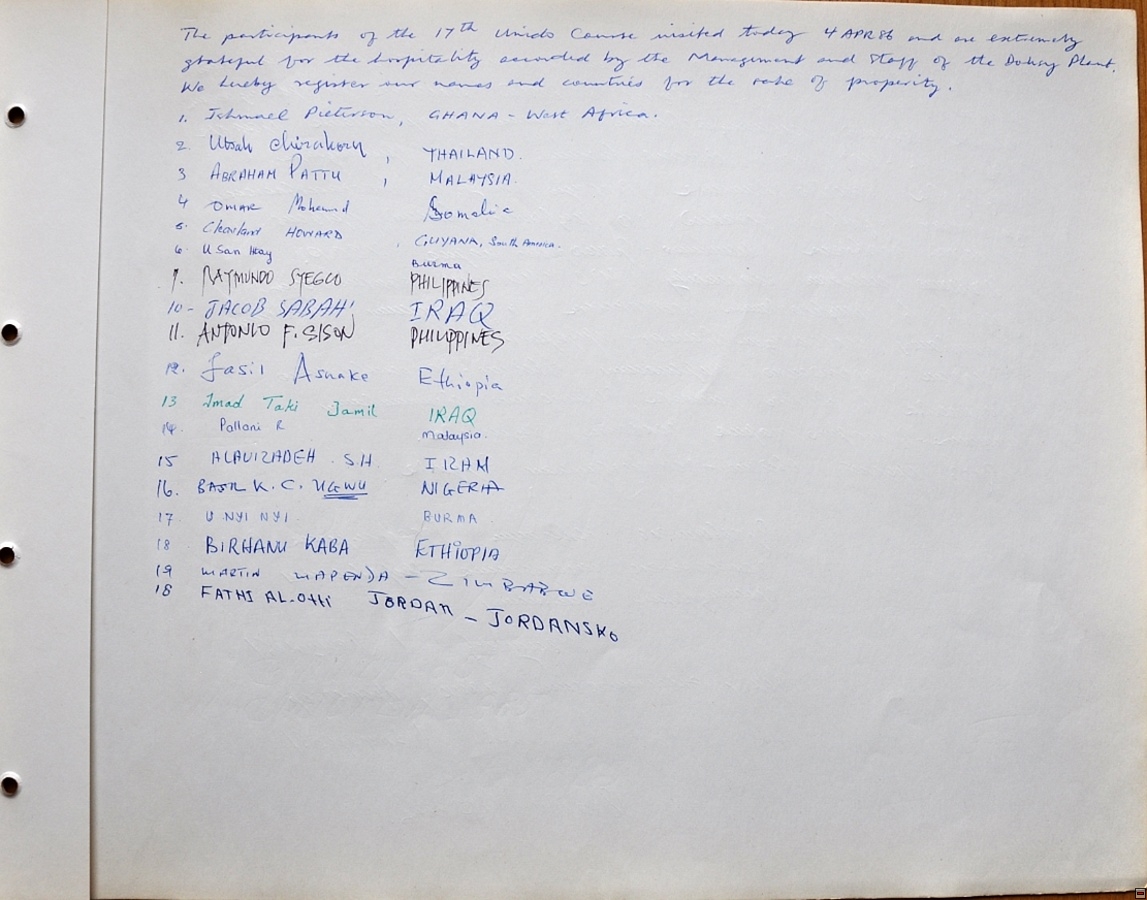 The participants of the 17th Unido Course visited today 4 APR 86 and are extremely
grateful for the hospitality accorded by the Management and Staff of the Plant.
We hereby register our names and countries for the sake of prosperity.
1. Ishmael Pieterson, GHANA - West Africa.
2. Utsah Chirakorn, THAILAND.
3 ABRAHAM PATTU, MALAYSIA.
4 OMAR Mohamed Somalia
5. HOWARD, GUYANA, South America.
6 U San Htay Burma
9. RAYMUNDO PHILIPPINES
10- JACOB SABAH IRAQ
11. ANTONIO F. SISON PHILIPPINES
12. Fasil Asnake Ethiopia
13 Imad Taki Jamil IRAQ
14. R Malaysia.
15 ALAVIZADEH . S.H. IRAN
16. BASIL K. C. UGWU NIGERIA
17 U NYI NYI BURMA
18 BIRHANU KABA ETHIOPIA
19 MARTIN MAPENDA - ZIMBABWE
18 FATHI AL-OTHI JORDAN - JORDANSKO